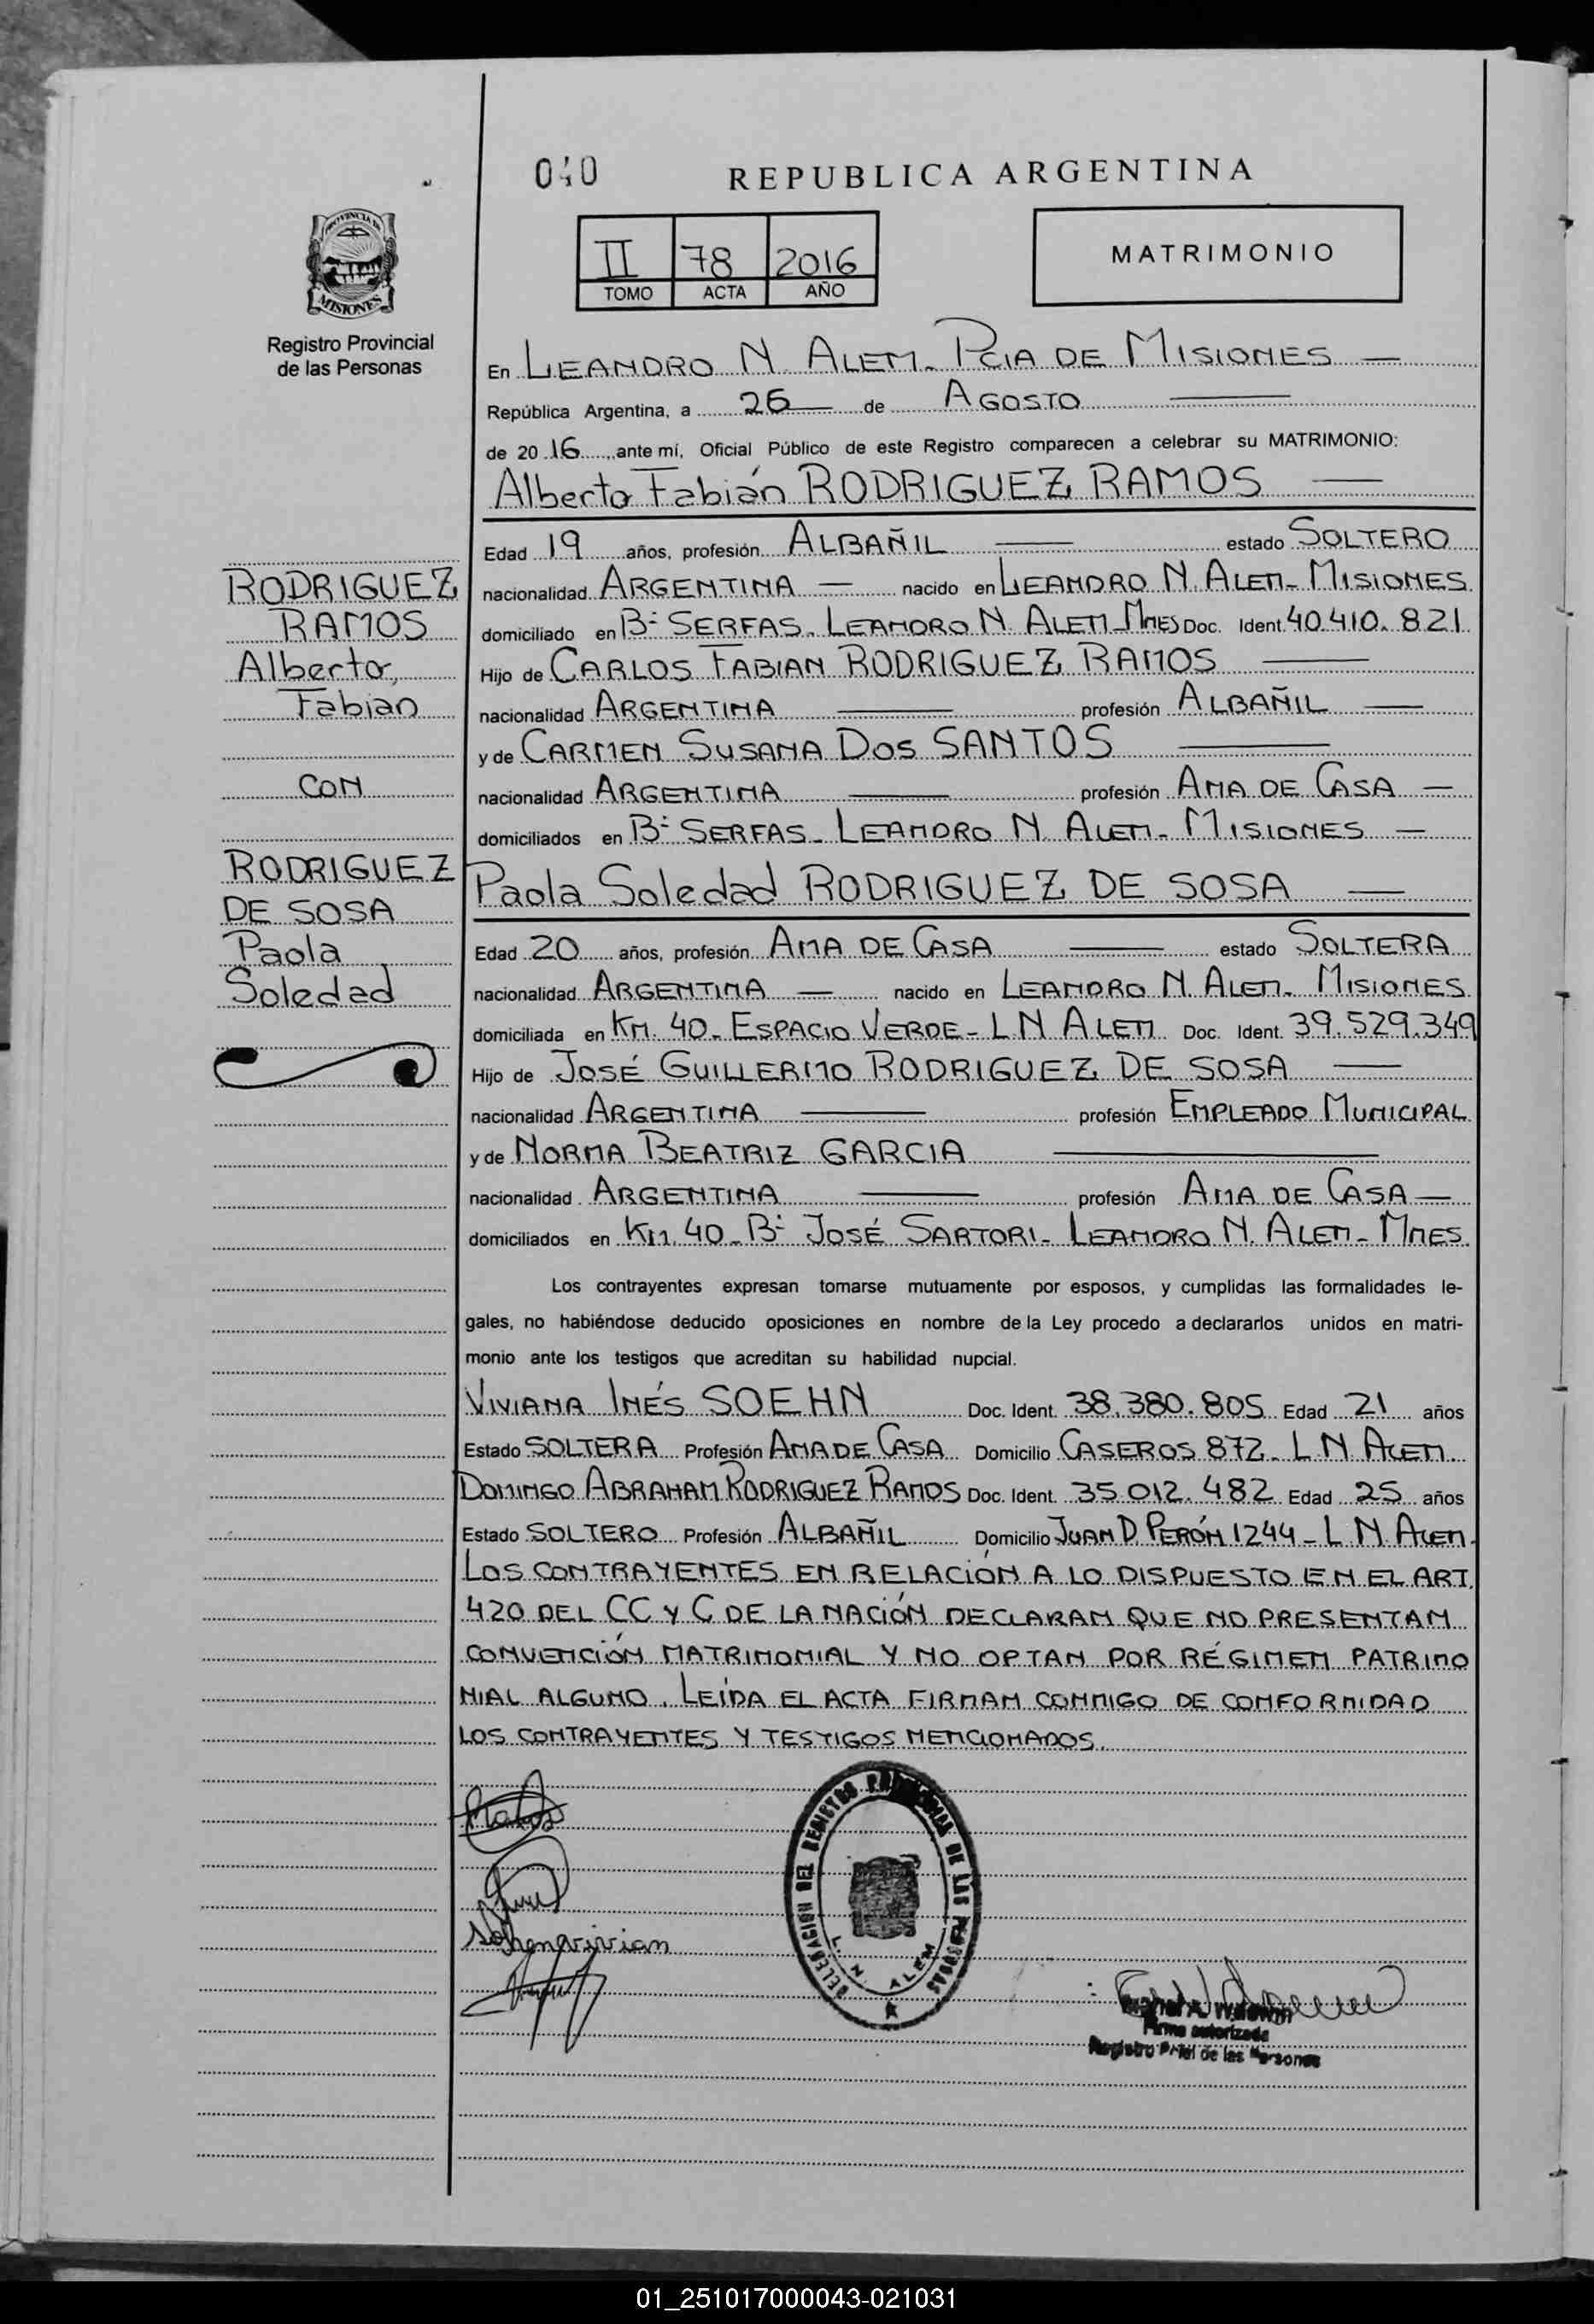 040
REPUBLICA ARGENTINA
PROVINCIA DE
MISIONES
Registro Provincial
de las Personas
II 78 2016
TOMO ACTA AÑO
MATRIMONIO
En LEANDRO N ALEM. PCIA DE MISIONES
República Argentina, a 26 de AGOSTO
de 2016 ante mí, Oficial Público de este Registro comparecen a celebrar su MATRIMONIO:
Alberto Fabián RODRIGUEZ RAMOS
Edad 19 años, profesión ALBAÑIL estado SOLTERO
nacionalidad ARGENTINA nacido en LEANDRO N. ALEM - MISIONES
domiciliado en Bº SERFAS - LEANDRO N. ALEM - MNES Doc. Ident. 40.410.821
Hijo de CARLOS FABIAN RODRIGUEZ RAMOS
nacionalidad ARGENTINA profesión ALBAÑIL
y de CARMEN SUSANA DOS SANTOS
nacionalidad ARGENTINA profesión AMA DE CASA
domiciliados en Bº SERFAS - LEANDRO N. ALEM - MISIONES
RODRIGUEZ
RAMOS
Alberto,
Fabian
CON
RODRIGUEZ
DE SOSA
Paola
Soledad
Paola Soledad RODRIGUEZ DE SOSA
Edad 20 años, profesión AMA DE CASA estado SOLTERA
nacionalidad ARGENTINA nacido en LEANDRO N. ALEM - MISIONES
domiciliada en KM. 40 - ESPACIO VERDE - L N ALEM Doc. Ident. 39.529.349
Hijo de JOSÉ GUILLERMO RODRIGUEZ DE SOSA
nacionalidad ARGENTINA profesión EMPLEADO MUNICIPAL
y de NORMA BEATRIZ GARCIA
nacionalidad ARGENTINA profesión AMA DE CASA
domiciliados en KM. 40 - Bº JOSÉ SARTORI - LEANDRO N. ALEM - MNES.
Los contrayentes expresan tomarse mutuamente por esposos, y cumplidas las formalidades le-
gales, no habiéndose deducido oposiciones en nombre de la Ley procedo a declararlos unidos en matri-
monio ante los testigos que acreditan su habilidad nupcial.
VIVIANA INÉS SOEHN Doc. Ident. 38.380.805 Edad 21 años
Estado SOLTERA Profesión AMA DE CASA Domicilio CASEROS 872 - L N ALEM
DOMINGO ABRAHAM RODRIGUEZ RAMOS Doc. Ident. 35.012.482 Edad 25 años
Estado SOLTERO Profesión ALBAÑIL Domicilio JUAN D. PERÓN 1244 - L N. ALEM.
LOS CONTRAYENTES EN RELACIÓN A LO DISPUESTO EN EL ART.
420 DEL CC Y C DE LA NACIÓN DECLARAN QUE NO PRESENTAN
CONVENCIÓN MATRIMONIAL Y NO OPTAN POR RÉGIMEN PATRIMO
NIAL ALGUNO. LEÍDA EL ACTA FIRMAN CONMIGO DE CONFORMIDAD
LOS CONTRAYENTES Y TESTIGOS MENCIONADOS.
DELEGACIÓN DEL REGISTRO PROVINCIAL DE LAS PERSONAS
L. N. ALEM
Firma autorizada
Registro Prial de las Personas
01_251017000043-021031